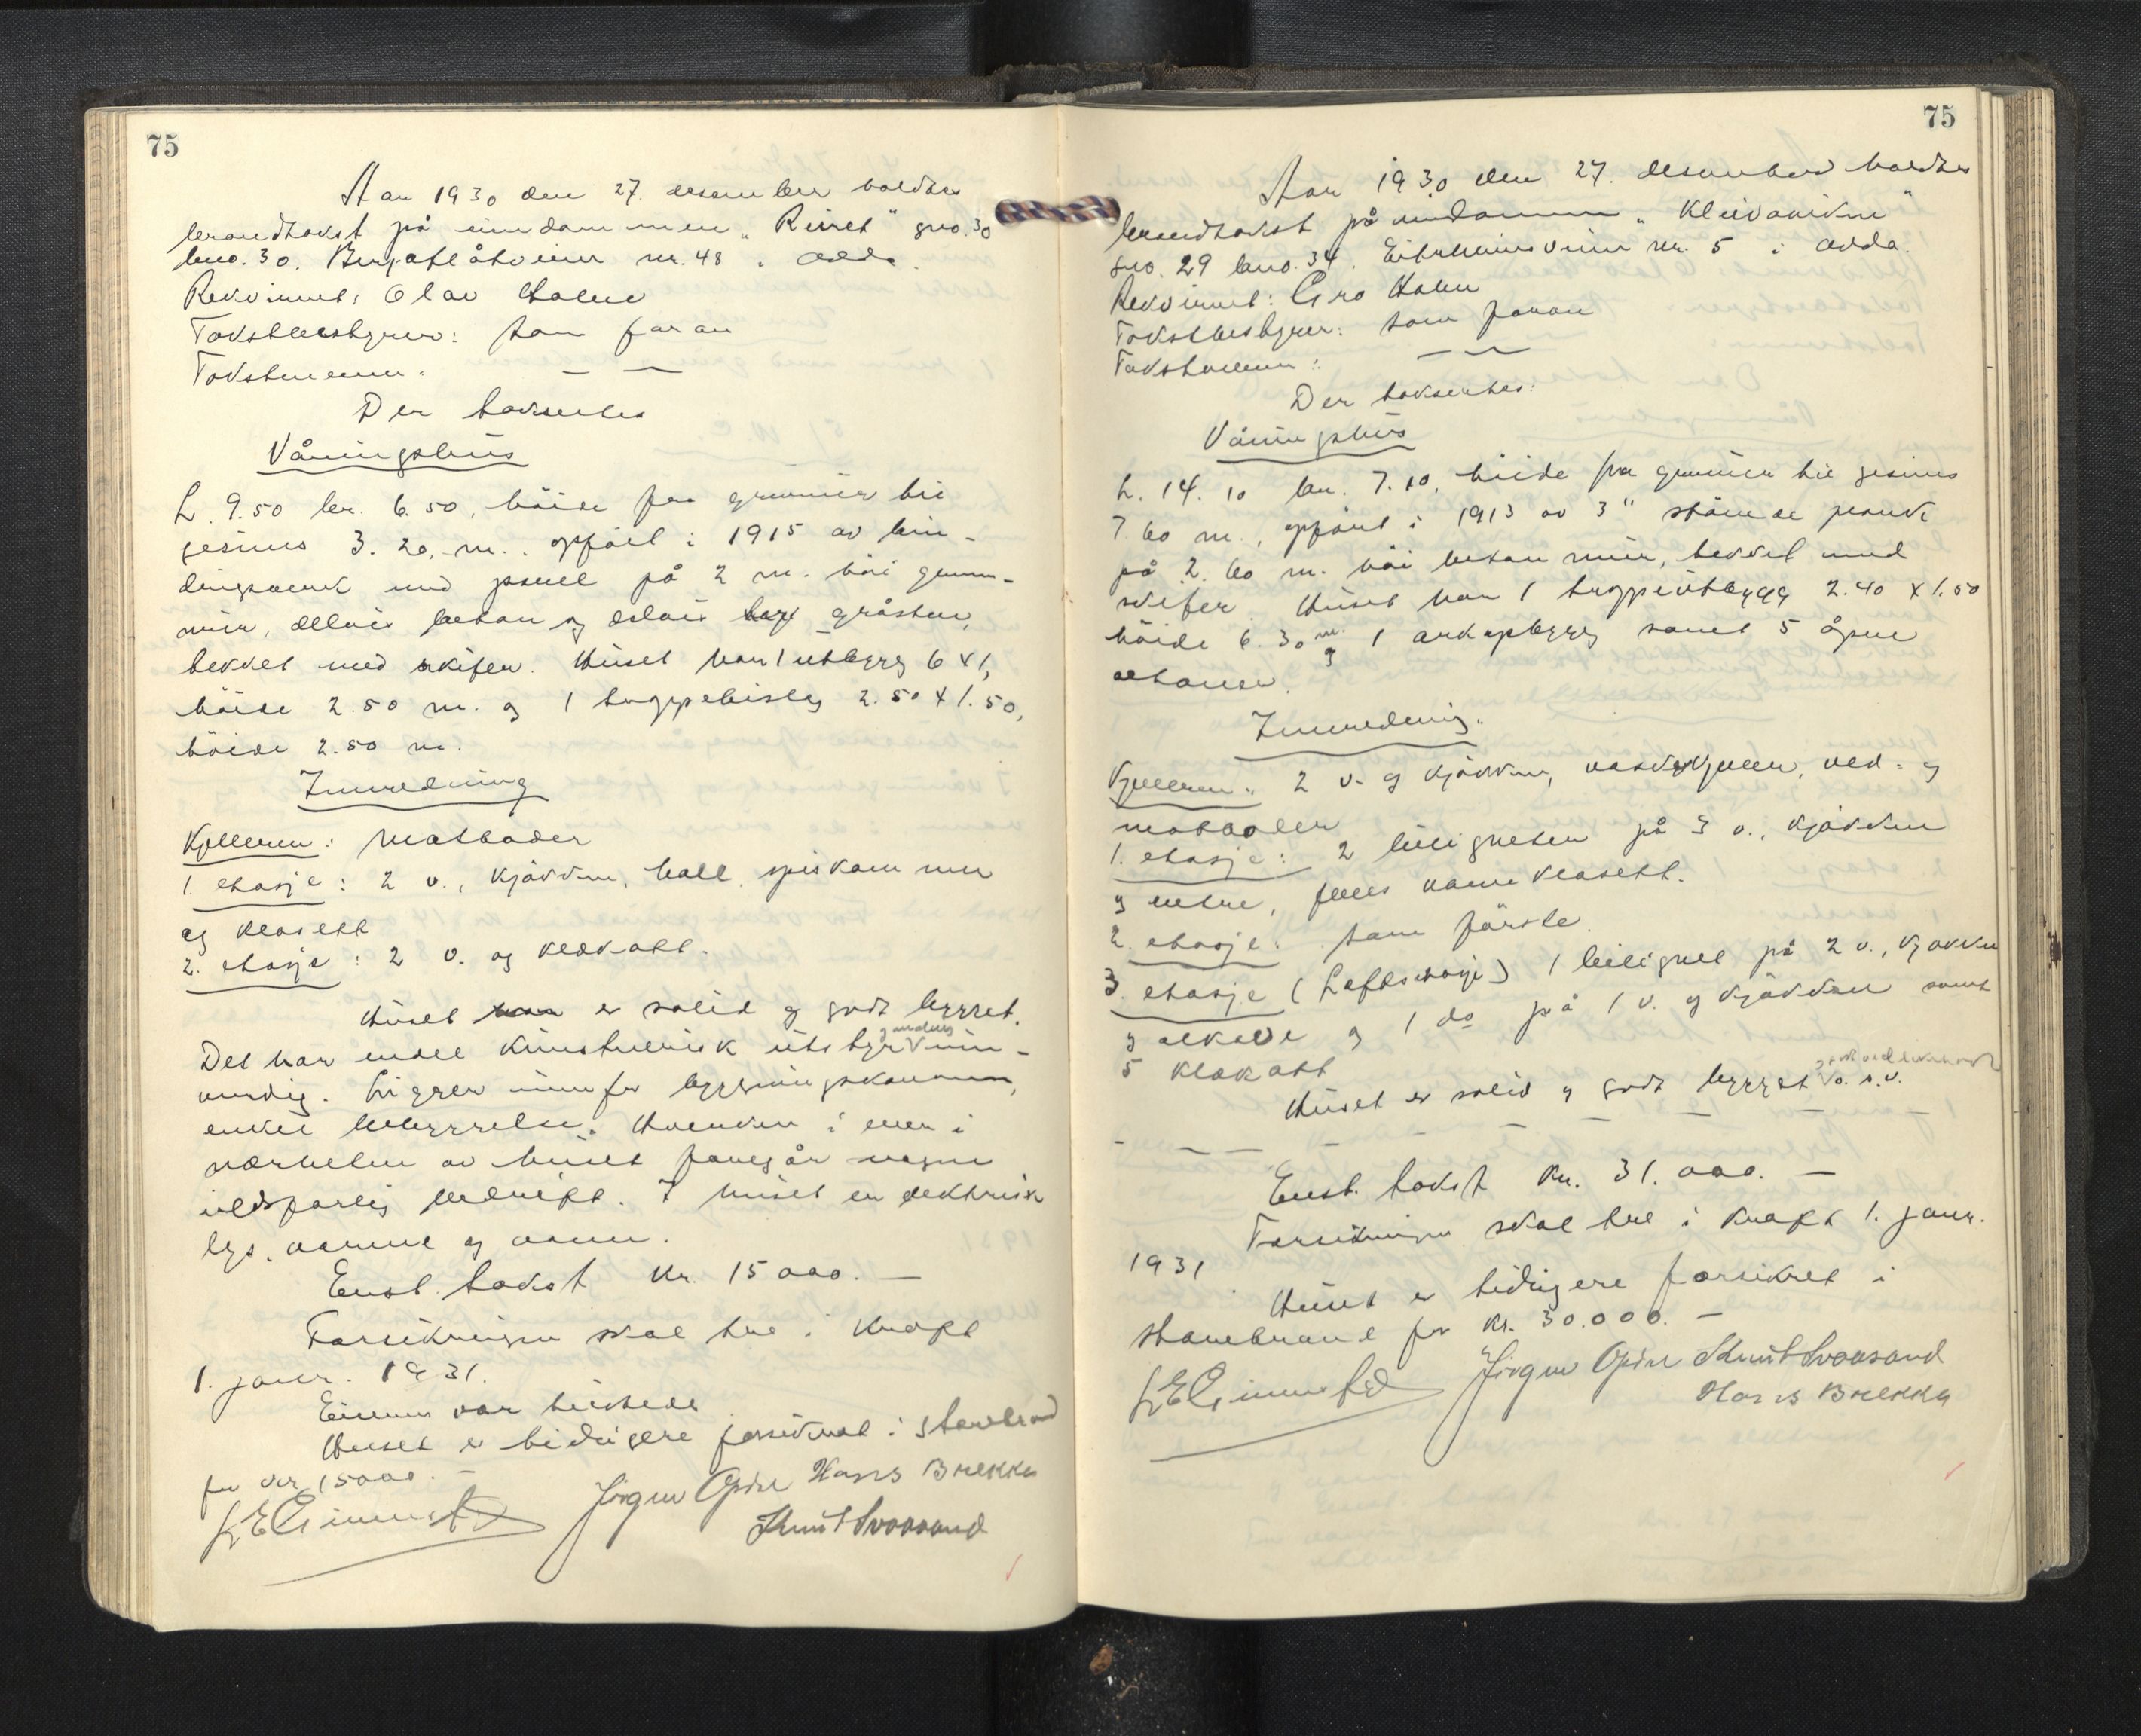 75
Aar 1930 den 27. desember holdtes
brandtakst på eiendommen „Reinet" gno. 30
bno. 30. Bergaflåtveien nr. 48 i Odda.
Rekvirent: Olav Halene
Takstbestyrer: som foran
Takstmenn: — —
Der takseertes
Våningshus
L. 9.50 br. 6.50, höide fra grunmur til
gesims 3.20, m., opfört i 1915 av bin-
dingsverk med panel på 2 m. höi grunn-
mur, delvis beton og delvis gråsten,
tekket med skifer. Huset har 1 utbygg 6 x 1,
höide 2.50 m. og 1 trappebislag 2.50 x 1.50,
höide 2.50 m.
Innredning
Kjelleren: Matboder
1. etasje: 2 v., kjökken, hall, spiskammer
og klosett
2. etasje: 2 v. og klækott.
Huset er solid og godt bygget.
Det har endel kunstnerisk utstyr
innvendig. Ligger innenfor bygningskommunen,
enkel bebyggelse. Hverken i eller i
nærheten av huset foregår nogen
ildsfarlig bedrift. I huset er elektrisk
lys, varme og vann.
Enst. takst kr. 15000.—
Forsikringen skal tre i kraft
1. januar. 1931.
Eieren var tilstede
Huset er tidligere forsikret i Storebrand
for kr 15000.—
Jörgen Opdal Hans Brekke
Knut Svaasand
75
Aar 1930 den 27. desember holdtes
brandtakst på eiendommen „Kleivaviken"
gno. 29 bno. 34. Eitrheimsveien nr. 5 i Odda.
Rekvirent: Gro Halen
Takstbestyrer: som foran
Takstmenn: — —
Der takseertes:
Våningshus
L. 14.10 br. 7.10, höide fra grunmur til gesims
7.60 m., opfört i 1913 av 3" stående plank
på 2.60 m. höi beton mur, tekket med
skifer. Huset har 1 trappeutbygg 2.40 x 1.50
höide 6.30 m. og 1 arkopbygg samt 5 åpne
altaner.
Innredning.
Kjelleren: 2 v. og kjökken, vaskekjeller, ved- og
matboder
1. etasje: 2 leiligheter på 3 v., kjökken
og entre, felles vannklosett.
2. etasje: som förste.
3. etasje (Loftsetasje) 1 leilighet på 2 v., kjökken
og alkove og 1 do på 1 v. og kjökken samt
5 klækott
Huset er solid og godt bygget o.s.v.
— — — — — — —
Enst. takst kr. 31.000.—
Forsikringen skal tre i kraft 1. januar.
1931.
Huset er tidligere forsikret i
Storebrand for kr. 30.000.—
Jörgen Opdal Knut Svaasand
Hans Brekke